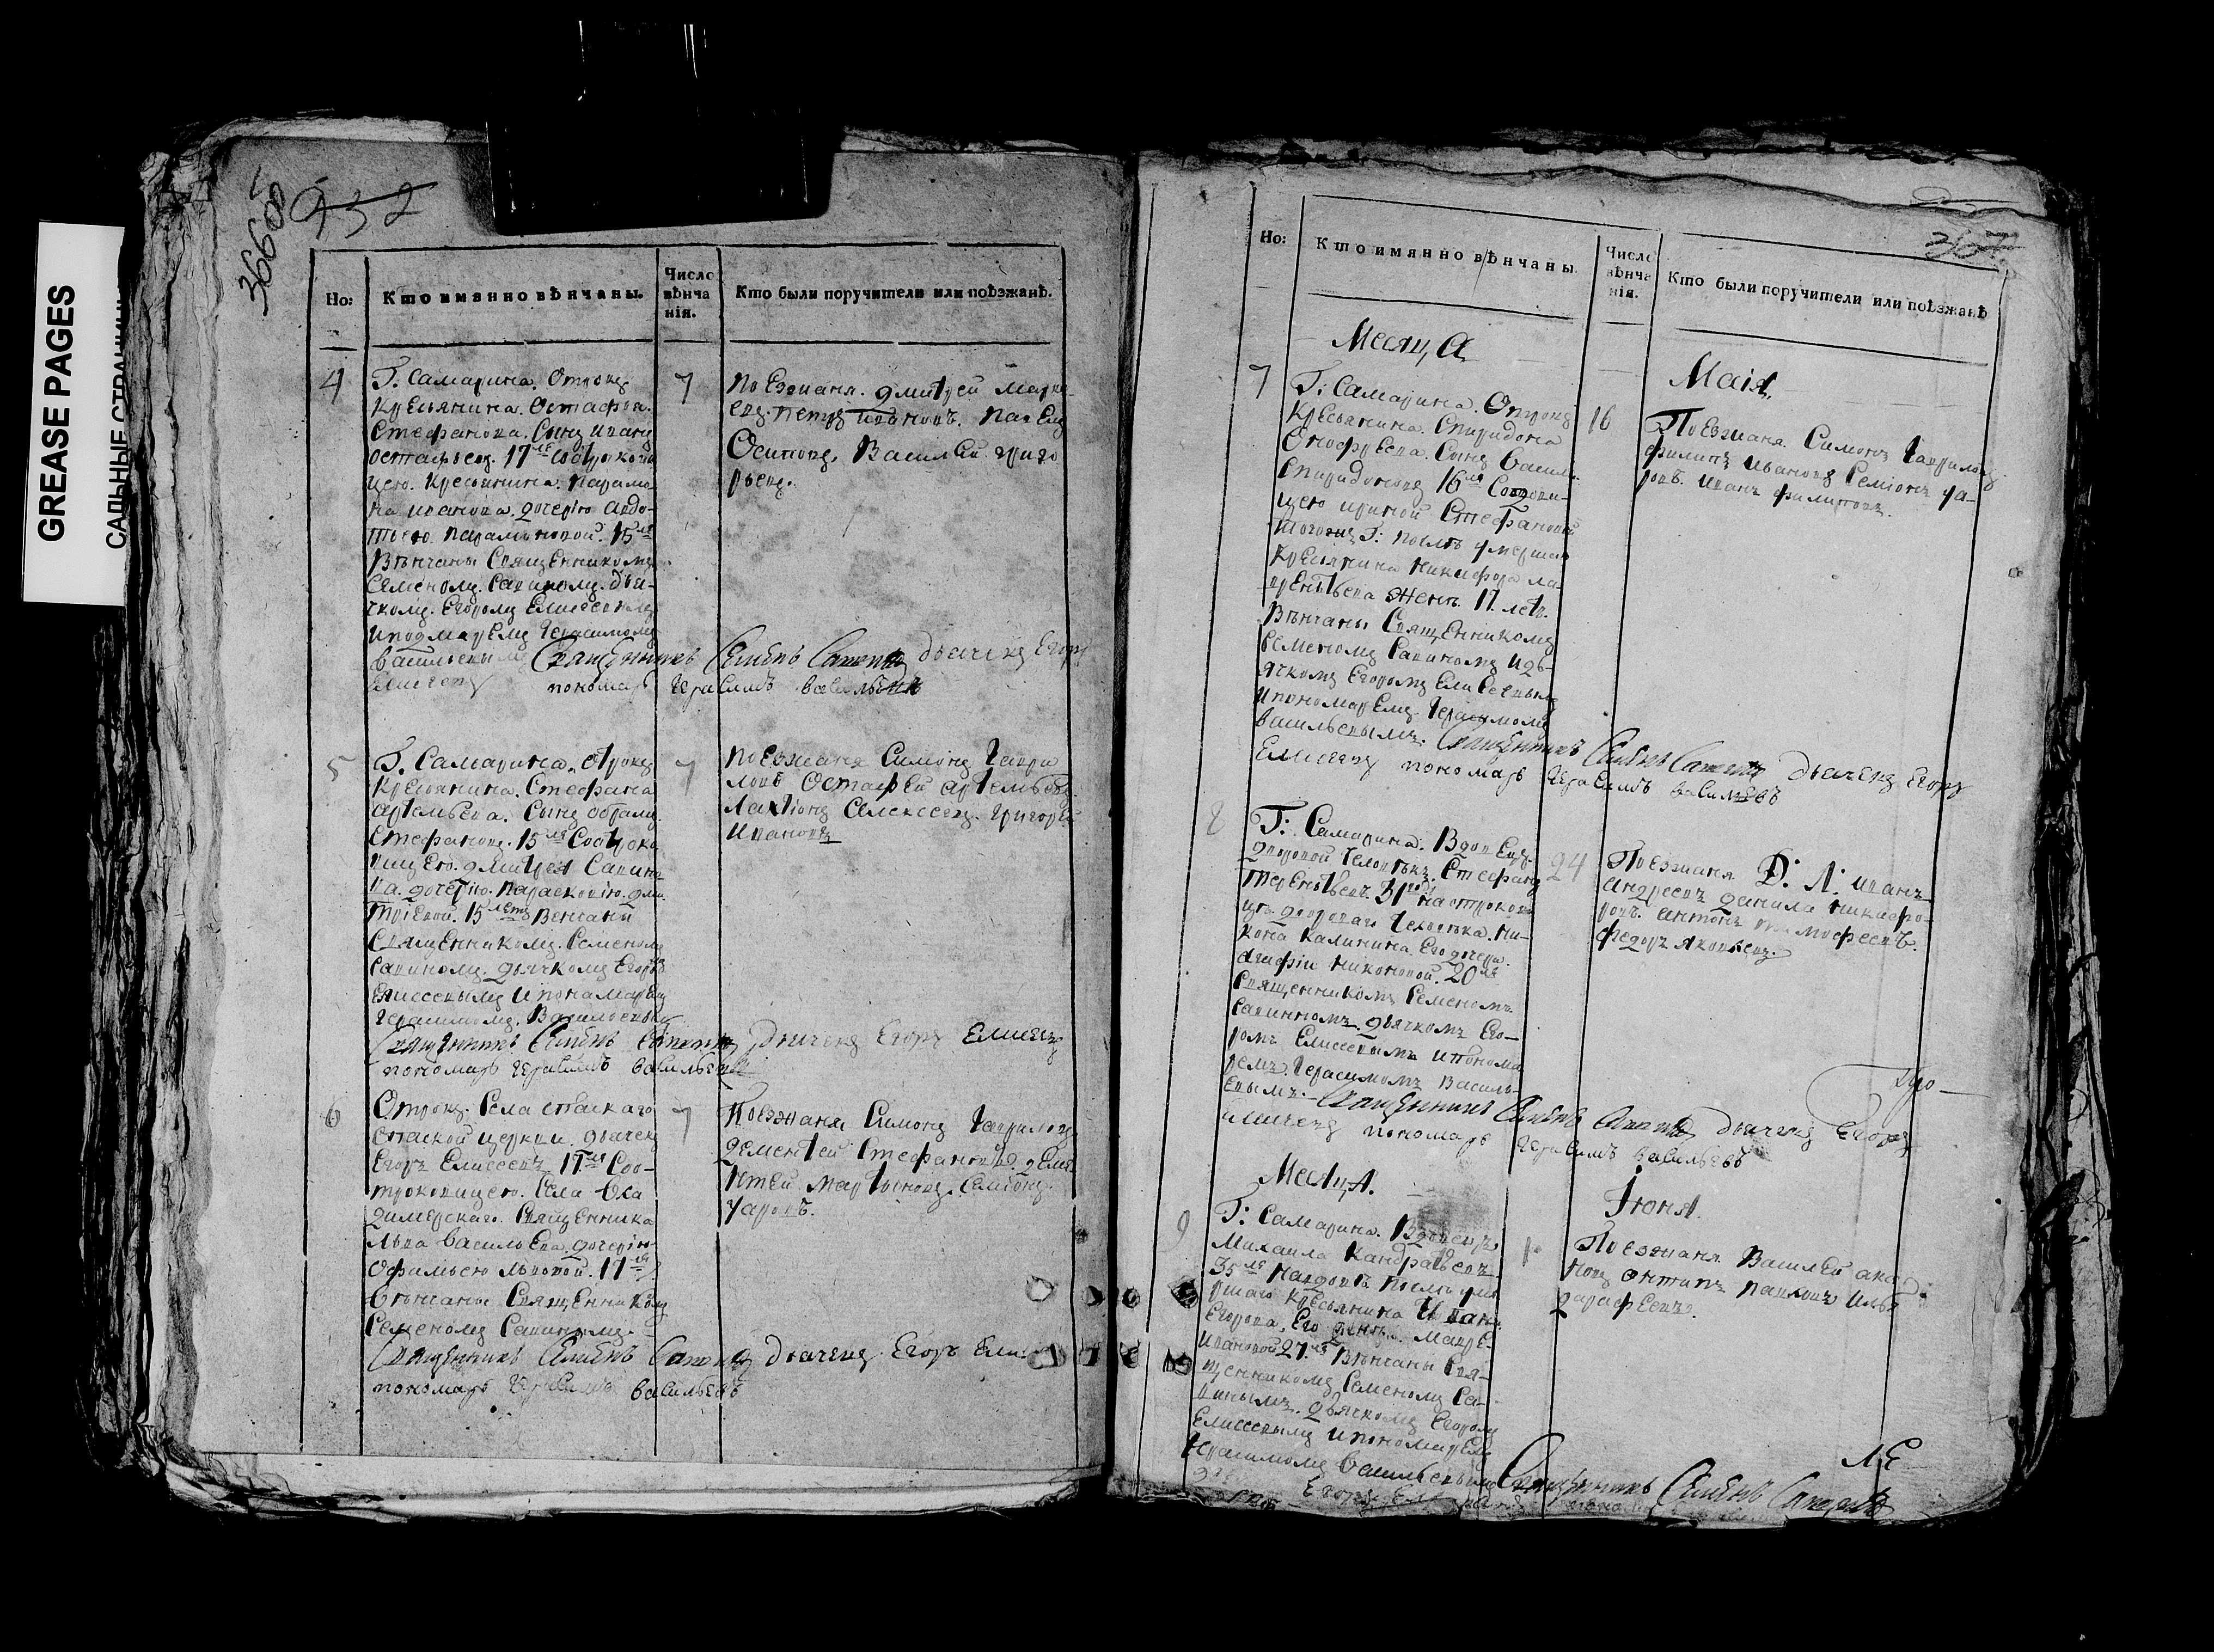 GREASE PAGES
САЛЬНЫЕ
932
Но:
Кто имянно вѣнчаны.
Число вѣнчанія.
Кто были поручители или поѣзжанѣ.
4
Г. Самарина. Отрокъ
Крестьянина. Остафья.
Стефанова. Сынъ иванъ
остафьевъ. 17 ле Сотрокови
цею. Крестьянина. Парамо
на иванова. дочерію авдо-
тьею. парамоновой. 15 ле
Вѣнчаны Священникомъ
Семеномъ. Савиномъ. дья-
чкомъ. Егоромъ Елисеевымъ
ипономаремъ Герасимомъ
васильевымъ Священникъ Семенъ дьячекъ Егоръ
Елисеевъ пономарь Герасимъ васильевъ
7
поезжаня. дмитрей марко
евъ. петръ ивановъ. павелъ
Осиповъ. Василей григо
рьевъ.
5
Г. Самарина. отрокъ
Крестьянина. Стефана
артемьева. Сынъ абрамъ
Стефановъ. 15 ле Соотроко
вицею. дмитрея Савин
ва. дочерію. парасковію. дми
тріевой. 15 летъ Венчаны
Священникомъ. Семеномъ
Савиномъ. дьячкомъ Егоромъ
Елисеевымъ ипонамаремъ
Герасимомъ. Васильевымъ
Священникъ Семенъ Дьячекъ Егоръ Елисеевъ
пономарь Герасимъ васильевъ
7
поезжаня Симонъ Гаври
ловъ Остафей артемьевъ
Лактіонъ Алексеевъ. Григорей
Ивановъ
6
Отрокъ. Села спаскаго
спаской церкви. дьячекъ
Егоръ Елисеевъ 17 ле Соо-
троковицею. Села
Священника
льва васильева. дочерію
офимьею львовой. 17 ле
вѣнчаны Священникомъ
Семеномъ Савиномъ.
Священникъ Семенъ дьячекъ Егоръ Ели
пономарь Герасимъ васильевъ
7
Поезжаня Симонъ Гавриловъ
дементей Стефановъ. деме
нтей мартыновъ. Семіонъ.
уаровъ.
367
Но:
Кто имянно вѣнчаны.
Число вѣнчанія.
Кто были поручители или поѣзжанѣ
Месяца
Маія
7
Г: Самарина. Отрокъ
Крестьянина. Спиридона
Онофреева. Сынъ Василей
Спиридоновъ 16 ле Соотрови-
цею ириной Стефановой
тогожъ Г: после умершаго
Крестьянина никифора ла-
врентьева жене. 17. летъ.
Вѣнчаны Священникомъ
Семеномъ Савиномъ идь-
ячкомъ Егоромъ Елисеевымъ
ипономаремъ. Герасимомъ
васильевымъ. Священникъ Семенъ дьячекъ Егоръ
Елисеевъ пономарь Герасимъ васильевъ
16
Поезжаня. Симонъ Гавриловъ
филипъ ивановъ Семіонъ уа-
ровъ. иванъ филиповъ.
8
Г: Самарина. Вдовецъ.
дворовой человѣкъ. Стефанъ
терентьевъ. 31 года на отрокови
це двороваго человѣка. ни-
кона калинина Его дочери.
агафіи никоновой. 20 ле
Священникомъ Семеномъ
Савиномъ. дьячкомъ Его-
ромъ Елисеевымъ ипонома
ремъ. Герасимомъ василь
евымъ. Священникъ Семенъ дьячекъ Егоръ
Елисеевъ пономарь Герасимъ васильевъ
24
Поезжаня Д: Л: иванъ
андреевъ данила никифо-
ровъ. антонъ тимофеевъ.
федоръ яковлевъ.
Месяца.
Іюня.
9
Г: Самарина. Вдовецъ
михаила кандратьевъ
35 ле навдовѣ после уме
ршаго крестьянина Ивана
Егорова. Его жены. мавре
ивановой 27. ле Вѣнчаны Свя-
щенникомъ Семеномъ Са-
виномъ. дьячкомъ Егоромъ
Елисеевымъ ипономаремъ
Герасимомъ васильевымъ Священникъ Семенъ
Егоръ
1
Поезжаня Василей
антипъ павловъ илья
дарафеевъ.